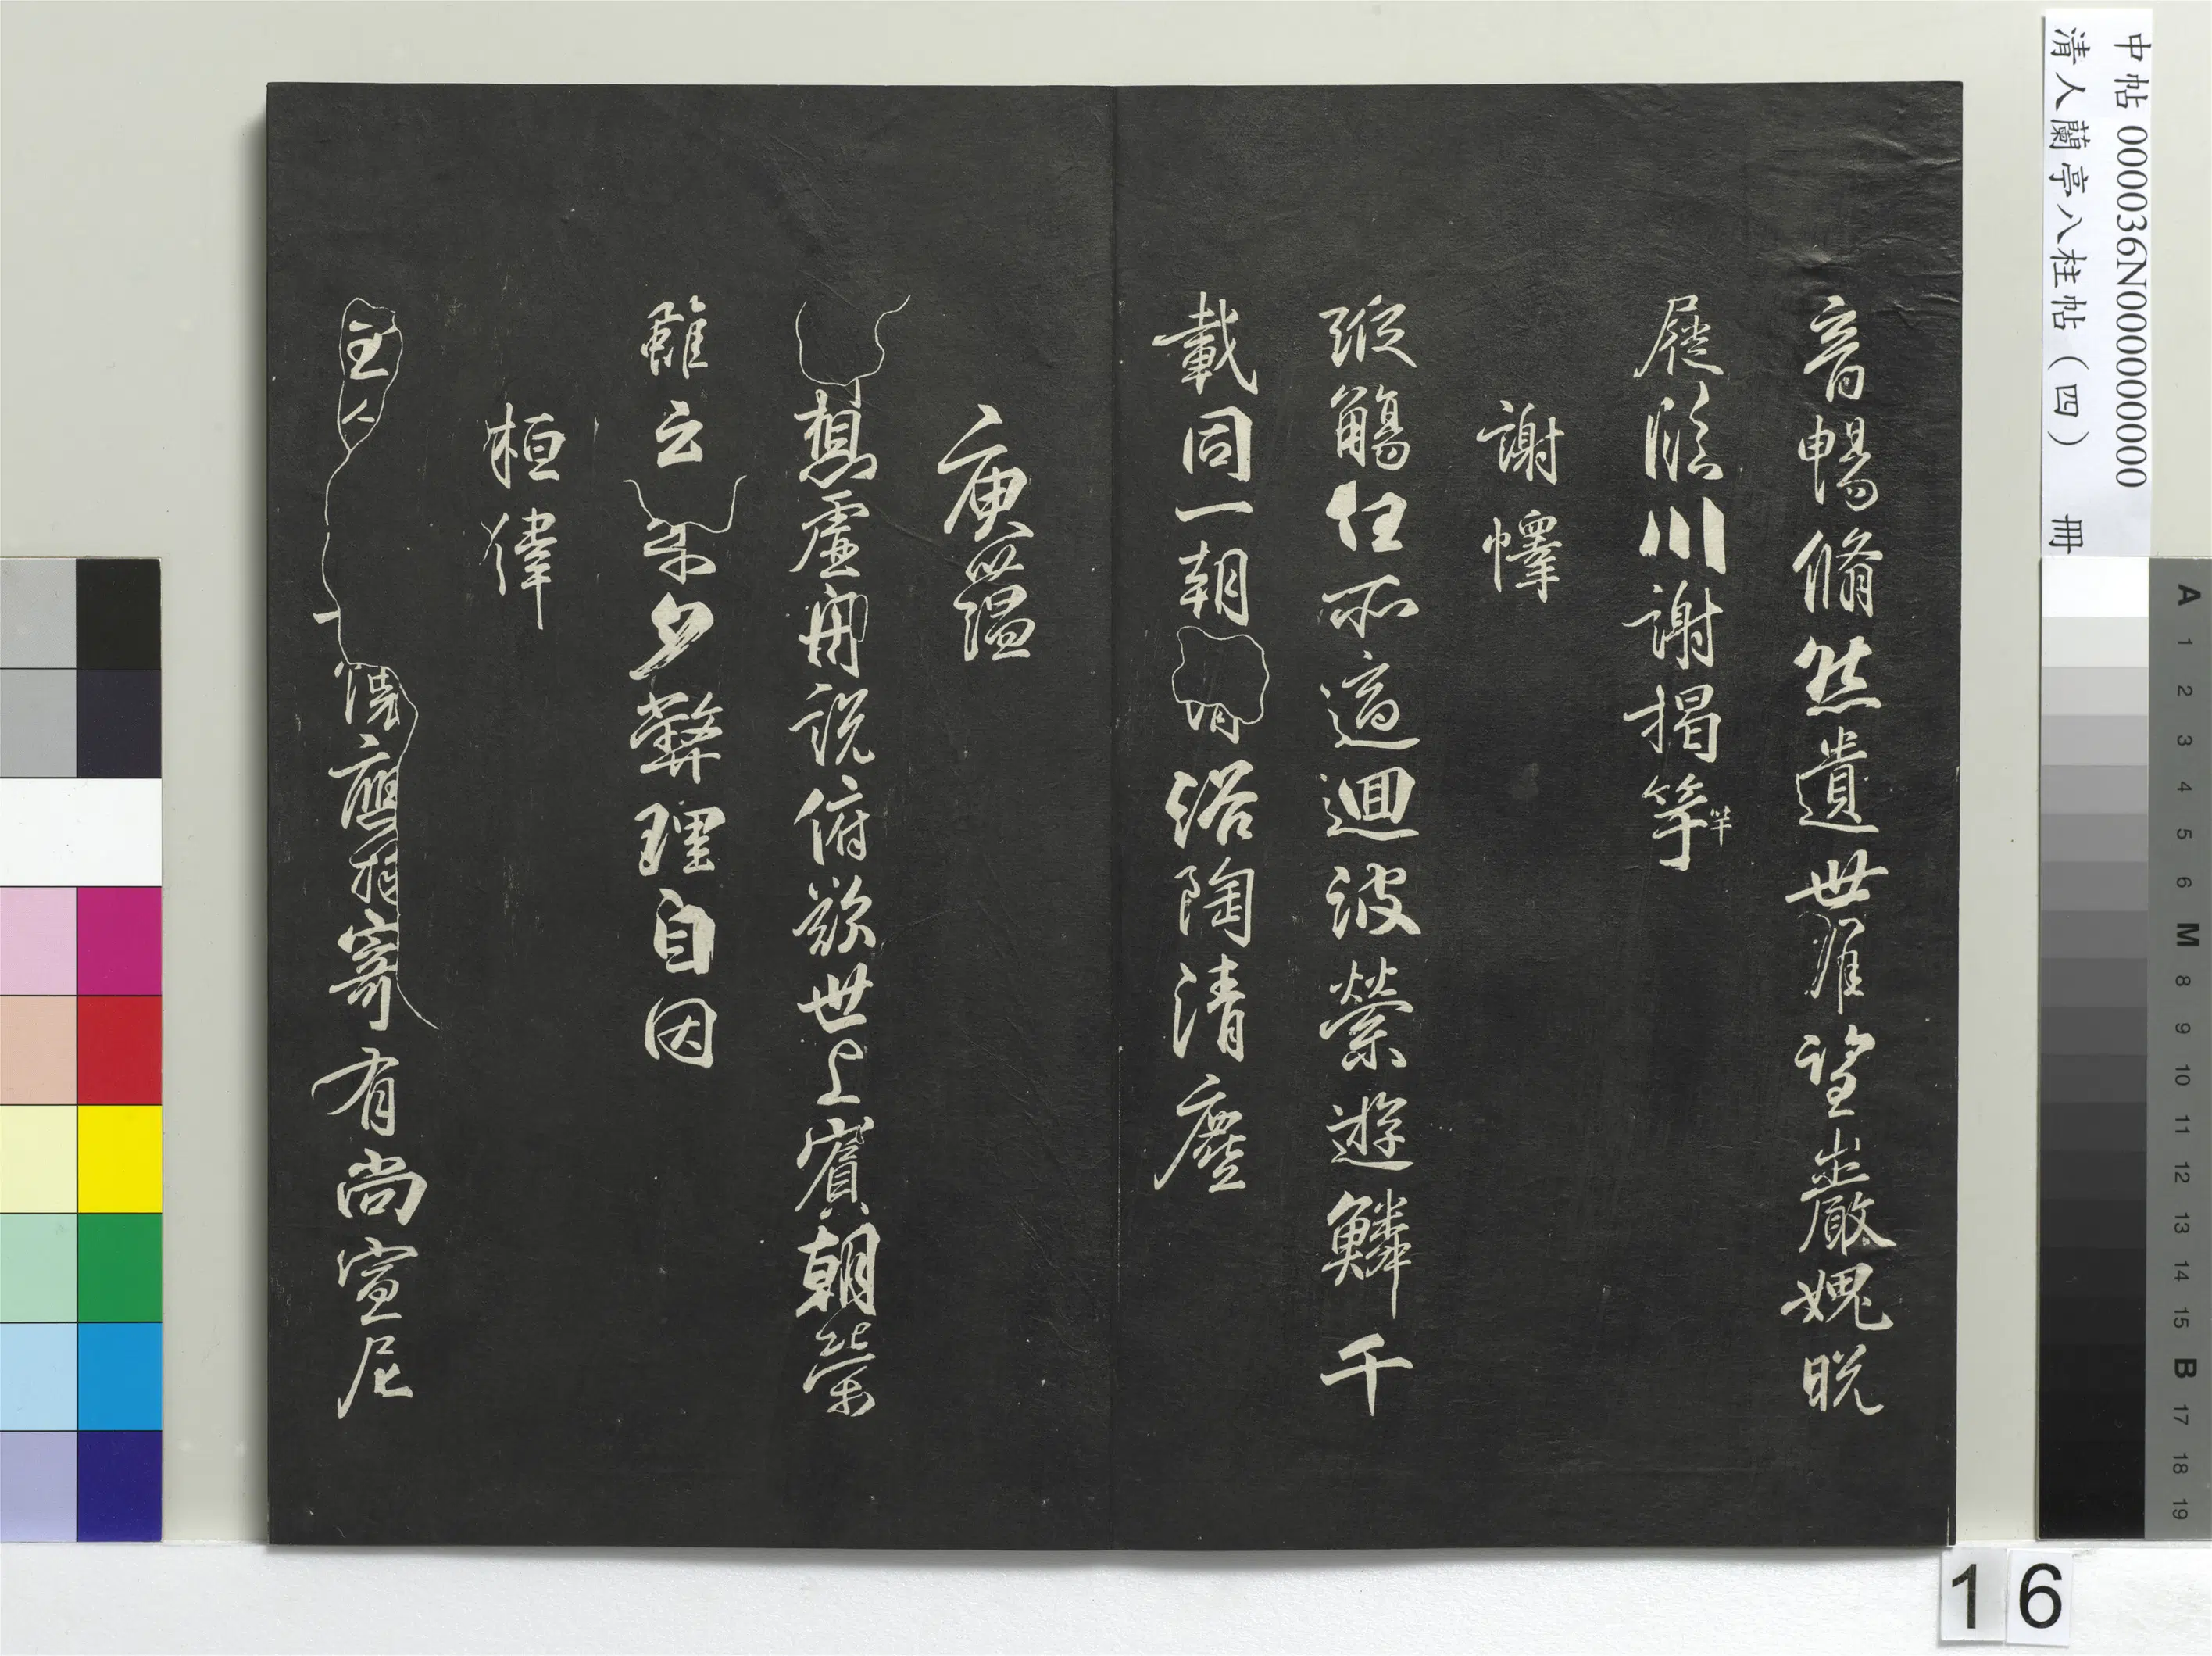 中帖 000036N000000000
清人蘭亭八柱帖（四） 冊
音暢脩然遺世難望巖愧脫
屣臨川謝揭竽竿
謝懌
縱觴任所適迴波縈遊鱗千
載同一朝浴陶清塵
庾蘊
想虛舟說俯歎世上賓朝榮
雖云樂夕弊理自因
桓偉
主人懷應物寄有尚宣尼
A 1 2 3 4 5 6 M 8 9 10 11 12 13 14 15 B 17 18 19
16